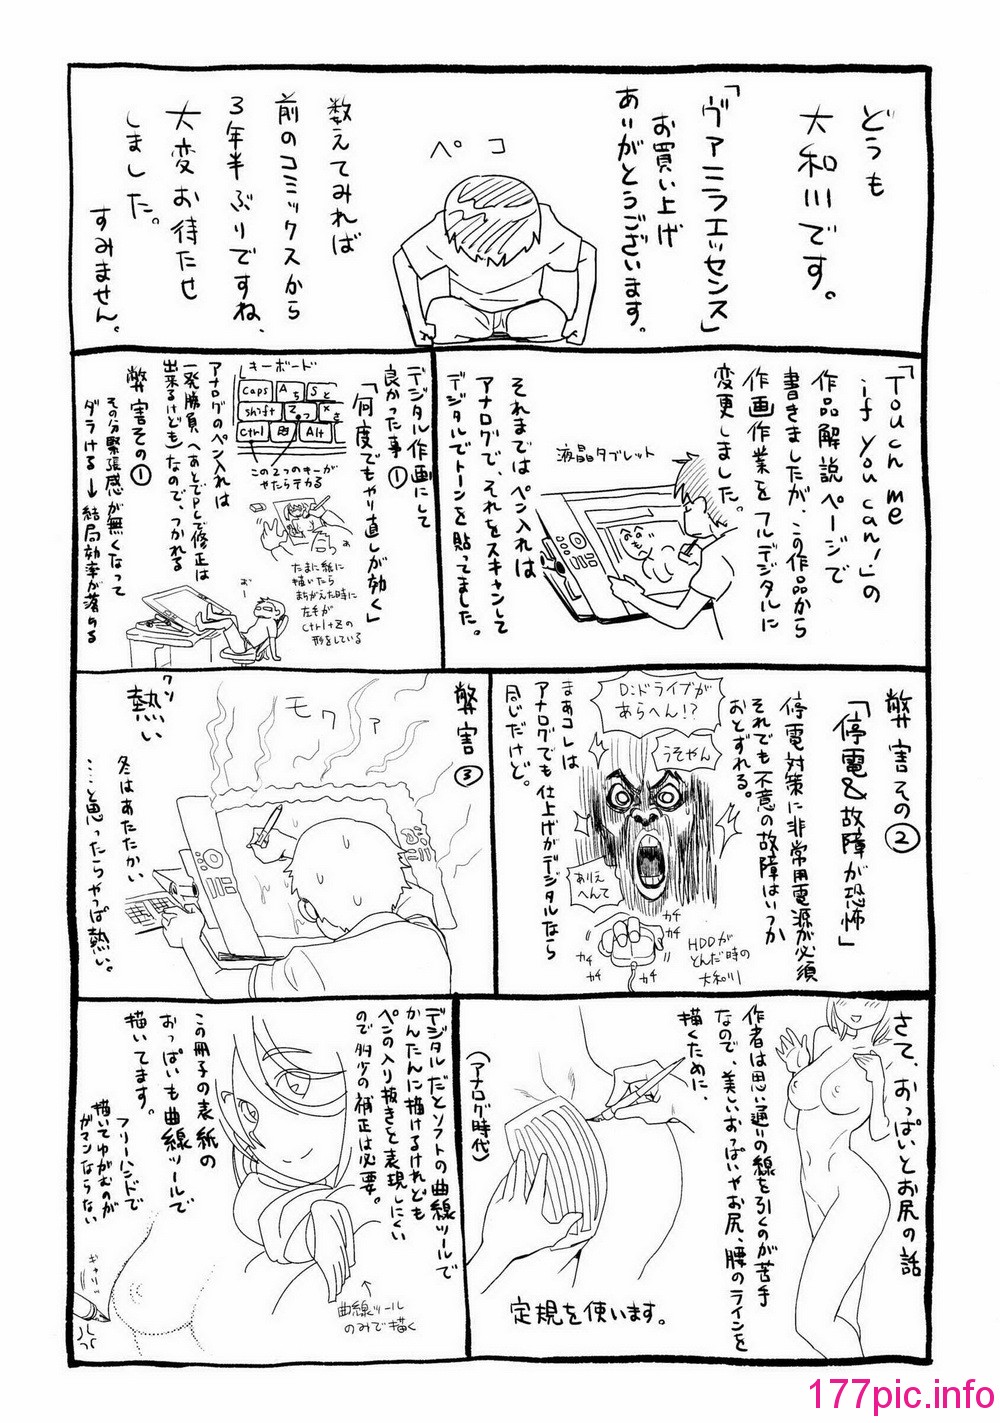 どうも
大和川です。
「ヴァニラエッセンス」
お買い上げ
ありがとうございます。
ペコ
数えてみれば
前のコミックスから
3年半ぶりですね、
大変お待たせ
しました。
すみません。
「Touch me
if you can!」の
作品解説ページで
書きましたが、この作品から
作画作業をフルデジタルに
変更しました。
液晶タブレット
それまではペン入れは
アナログで、それをスキャンして
デジタルでトーンを貼ってました。
デジタル作画にして
良かった事①
「何度でもやり直しが効く」
キーボード
Caps
A ち
S と
shift
Z っ
X さ
Ctrl
Alt
この2つのキーが
やたらテカる
たまに紙に
描いたら
まちがえた時に
左手が
Ctrl+Zの
形をしている
アナログのペン入れは
一発勝負(あとでトレで修正は
出来るけども)なので、つかれる
弊害その①
その分緊張感が無くなって
ダラける→結局効率が落ちる
おー
弊害その②
「停電&故障が恐怖」
停電対策に非常用電源が必須
それでも不意の故障はいつか
おとずれる。
D:ドライブが
あらへん!?
うそやん
ありえ
へんて
カチ
カチ
カチ
カチ
HDDが
とんだ時の
大和川
まあコレは
アナログでも仕上げがデジタルなら
同じだけど。
弊害③
モワァ
熱い
冬はあたたかい
……と思ったらやっぱ熱い。
さて、おっぱいとお尻の話
作者は思い通りの線を引くのが苦手
なので、美しいおっぱいやお尻、腰のラインを
描くために、
(アナログ時代)
定規を使います。
デジタルだとソフトの曲線ツールで
かんたんに描けるけれども
ペンの入り抜きを表現しにくい
ので多少の補正は必要。
この冊子の表紙の
おっぱいも曲線ツールで
描いてます。
フリーハンドで
描いてゆがむのが
ガマンならない
曲線ツール
のみで描く
177pic.info